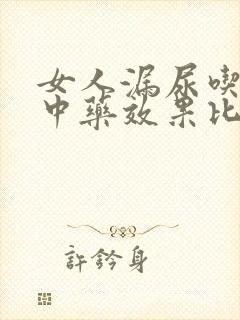 女人漏尿喫
中藥效果比
許鈐身